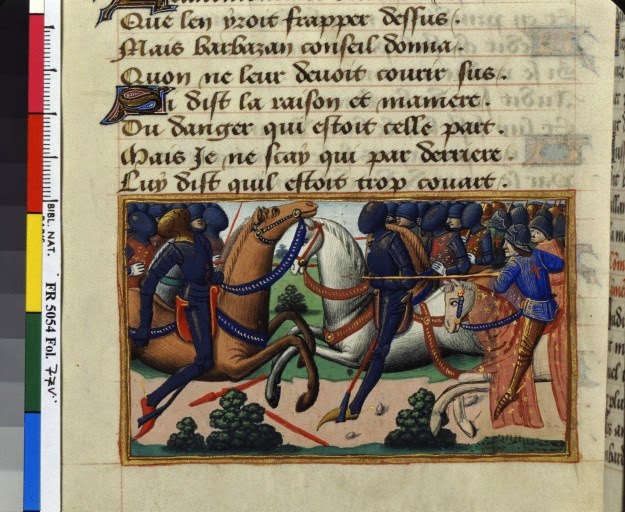 Que len yroit frapper dessus.
Mais barbazan conseil donna.
Quon ne leur devoit courir sus.
Si dist la raison et maniere.
Du danger qui estoit celle part.
Mais Je ne scay qui par derriere.
Luy dist quil estoit trop couart.
BIBL. NAT.
FR 5054 Fol. 77v°